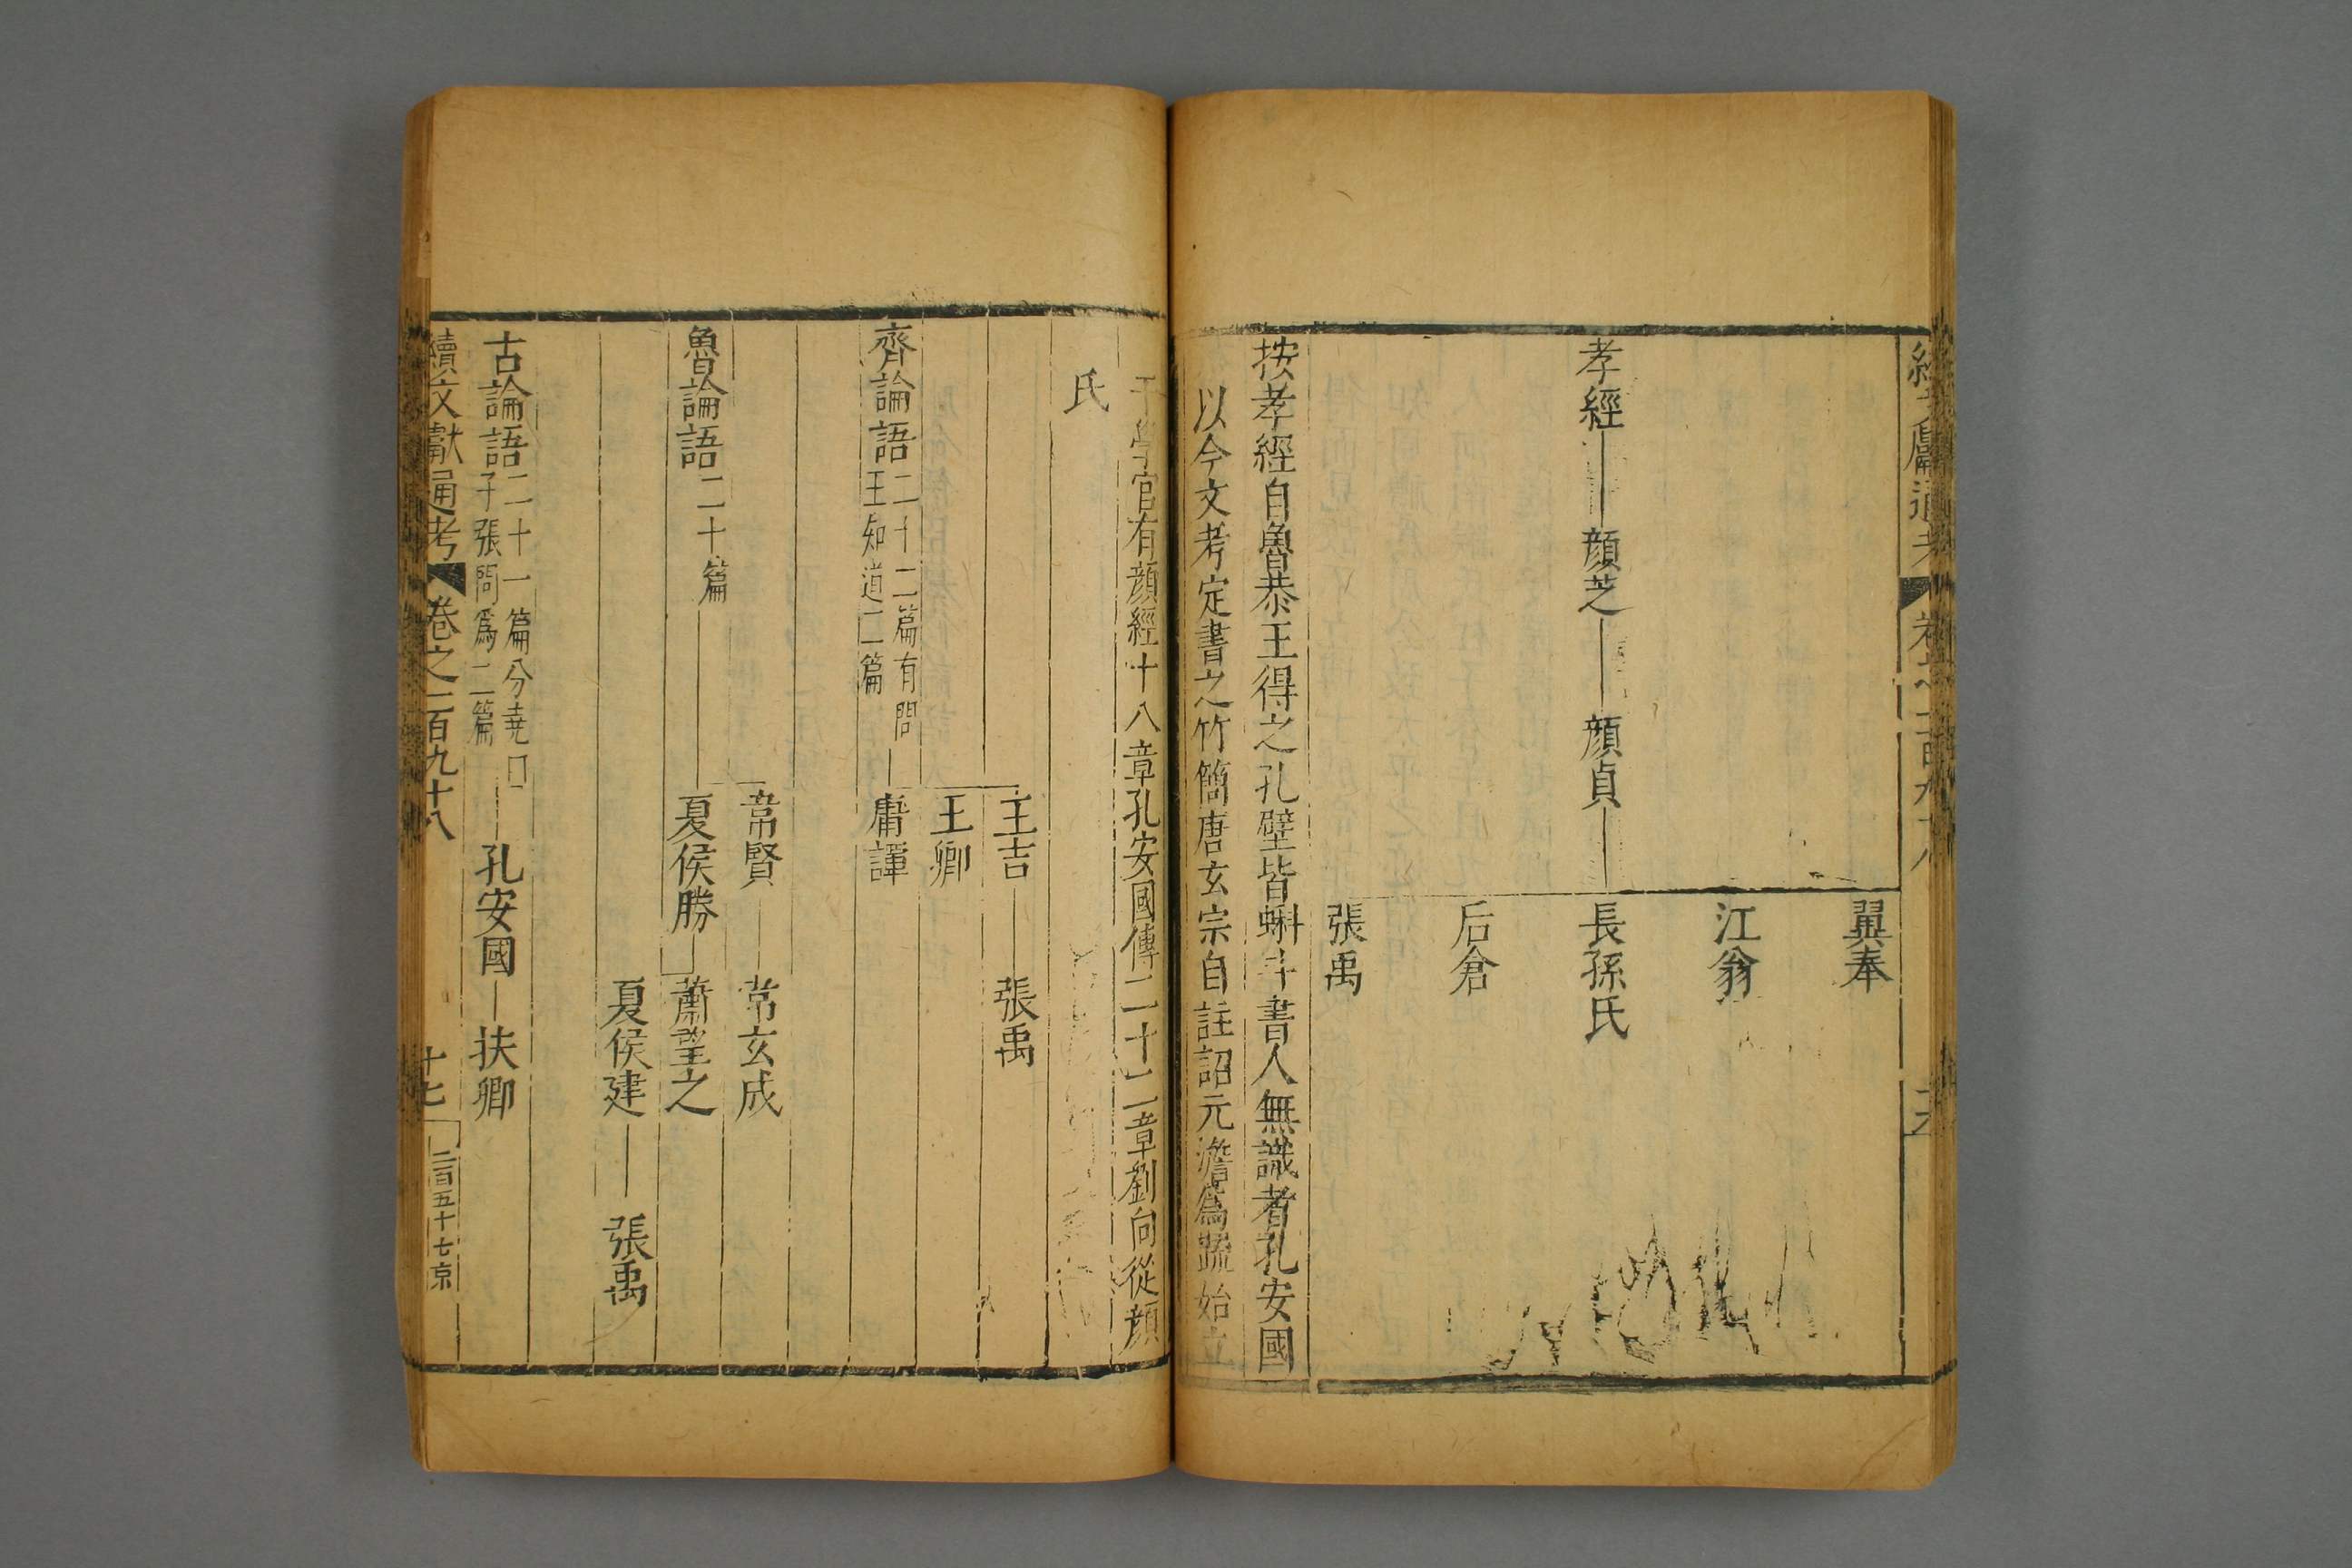 翼奉
江翁
孝經 顔芝 顔貞 長孫氏
后倉
張禹
按孝經自魯恭王得之孔壁皆蝌斗書人無識者孔安國
以今文考定書之竹簡唐玄宗自註詔元澹為疏始立
于學官有顔經十八章孔安國傳二十二章劉向從顔
氏
王吉 張禹
王卿
齊論語 二十二篇有問
王知道二篇
庸譚
常賢 常玄成
魯論語 二十篇 夏侯勝 蕭望之
夏侯建 張禹
古論語 二十一篇分堯口
子張問爲二篇
孔安國 扶卿
續文獻通考 卷之一百九十八 十七 二百五十七 京